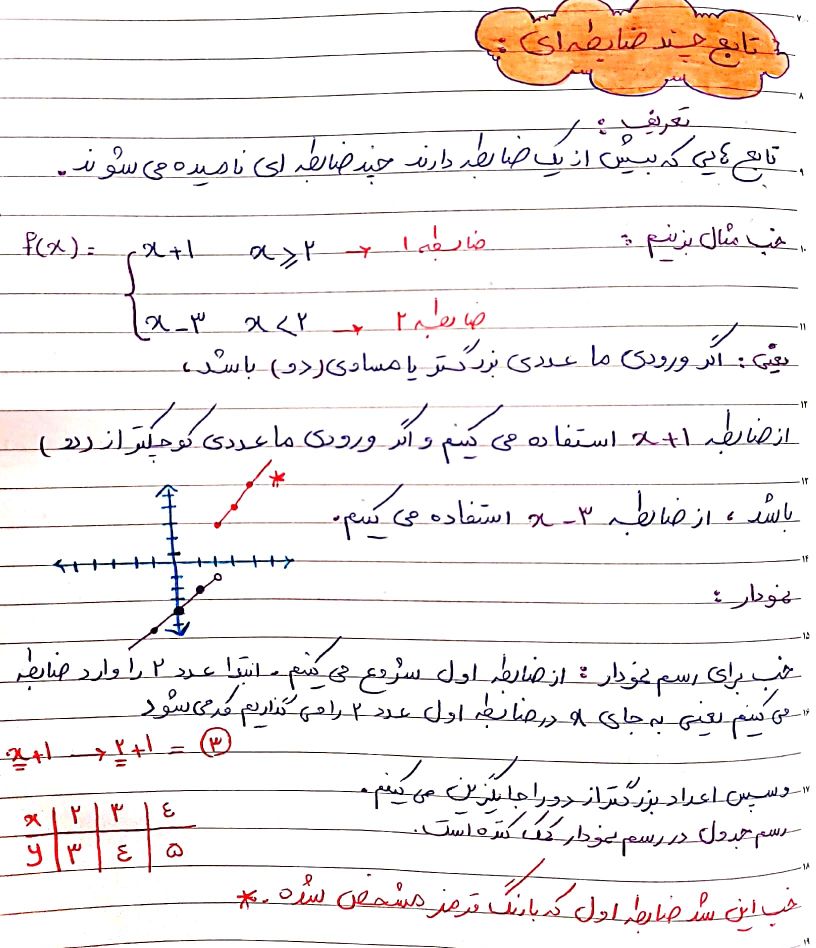 تابع چند ضابطه ای :
تعریف :
تابع هایی که بیش از یک ضابطه دارند چند ضابطه ای نامیده می شوند.
خب مثال بزنیم :
f(x) = { x+1    x ≥ ۲ → ضابطه ۱
x-۳    x < ۲ → ضابطه ۲
یعنی : اگر ورودی ما عددی بزرگتر یا مساوی (دو) باشد ،
از ضابطه x+1 استفاده می کنیم و اگر ورودی ما عددی کوچکتر از (دو)
باشد ، از ضابطه x-۳ استفاده می کنیم.
*
نمودار :
خب برای رسم نمودار : از ضابطه اول شروع می کنیم. ابتدا عدد ۲ را وارد ضابطه
می کنیم یعنی به جای x در ضابطه اول عدد ۲ را می گذاریم که می شود
x+1 → ۲+1 = ۳
وسپس اعداد بزرگتر از دو را جایگزین می کنیم.
x | ۲ | ۳ | ٤
رسم جدول در رسم نمودار کمک کننده است.
y | ۳ | ٤ | ۵
خب این شد ضابطه اول که با رنگ قرمز مشخص شده . *
۷
۸
۹
۱۰
۱۱
۱۲
۱۳
۱۴
۱۵
۱۶
۱۷
۱۸
۱۹